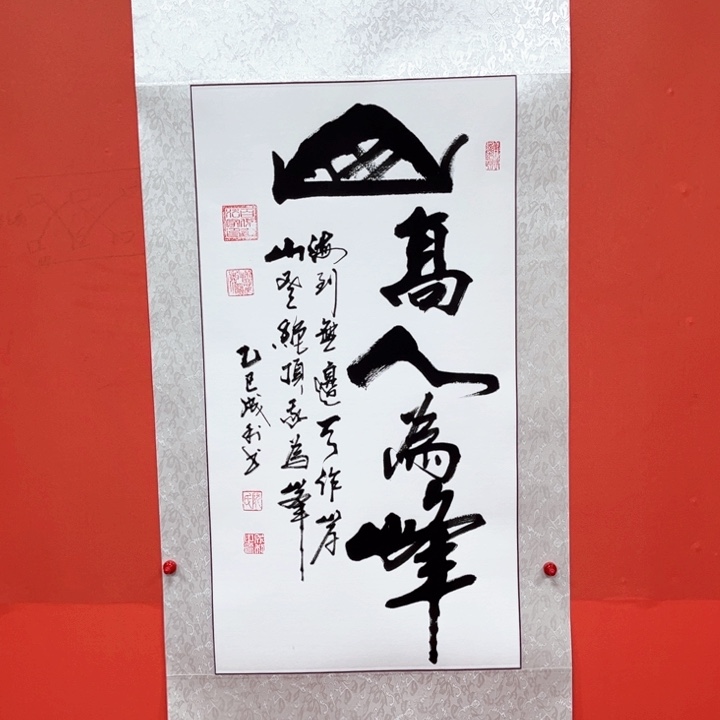 山高人為峰
海到無邊天作岸
山登絕頂我為峰
乙巳成利书